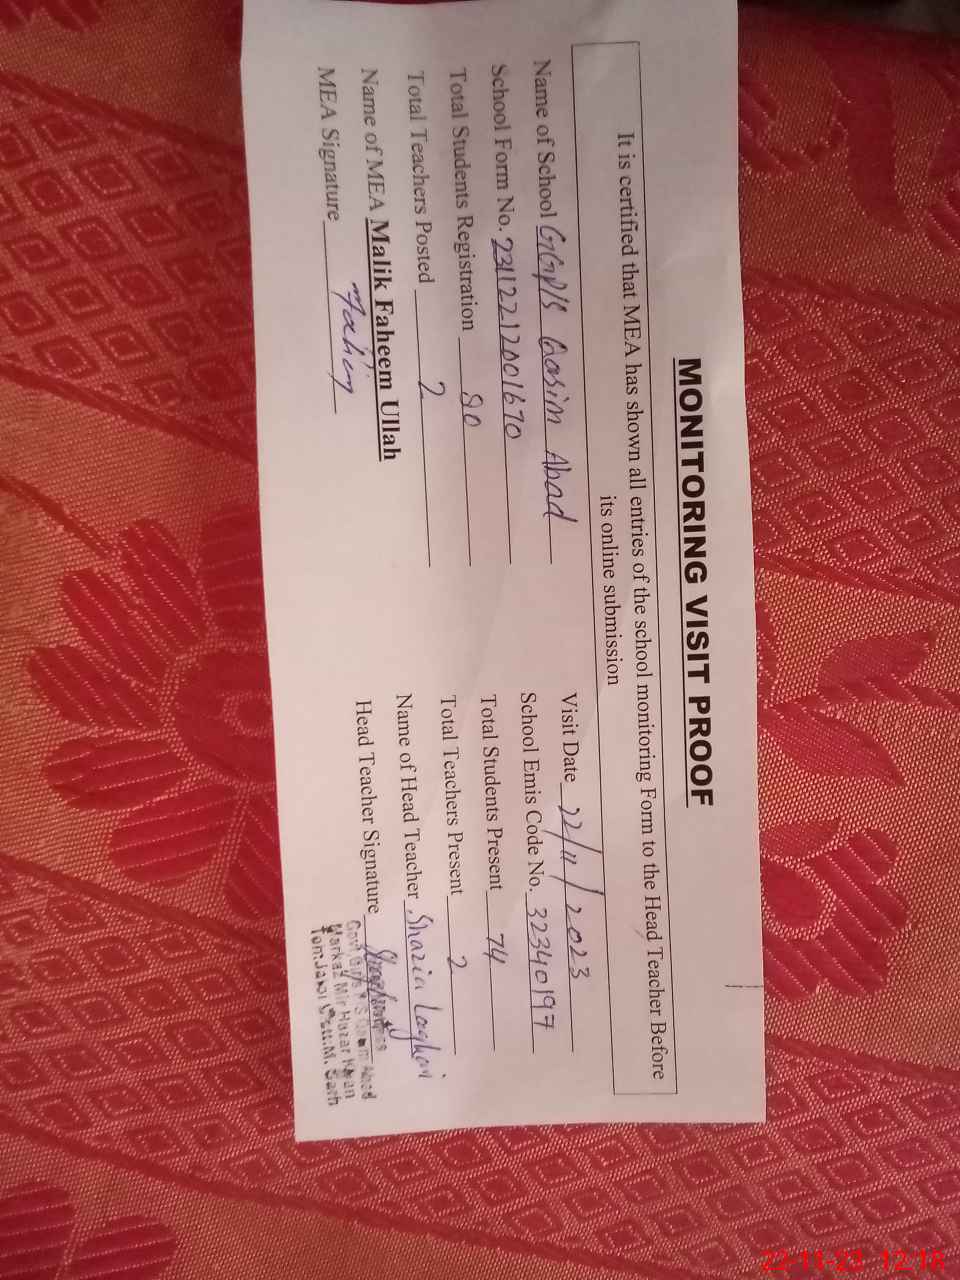 MONITORING VISIT PROOF
It is certified that MEA has shown all entries of the school monitoring Form to the Head Teacher Before
its online submission
Name of School GGP/S Qasim Abad
Visit Date 22/11/2023
School Form No. 231122120001670
School Emis Code No. 32340197
Total Students Registration 80
Total Students Present 74
Total Teachers Posted 2
Total Teachers Present 2
Name of MEA Malik Faheem Ullah
Name of Head Teacher Shazia Laghari
MEA Signature Fahim
Head Teacher Signature
Govt Girls P/S Abad
Markaz Mir Hazar Khan
M. Garh
22-11-23 12:18